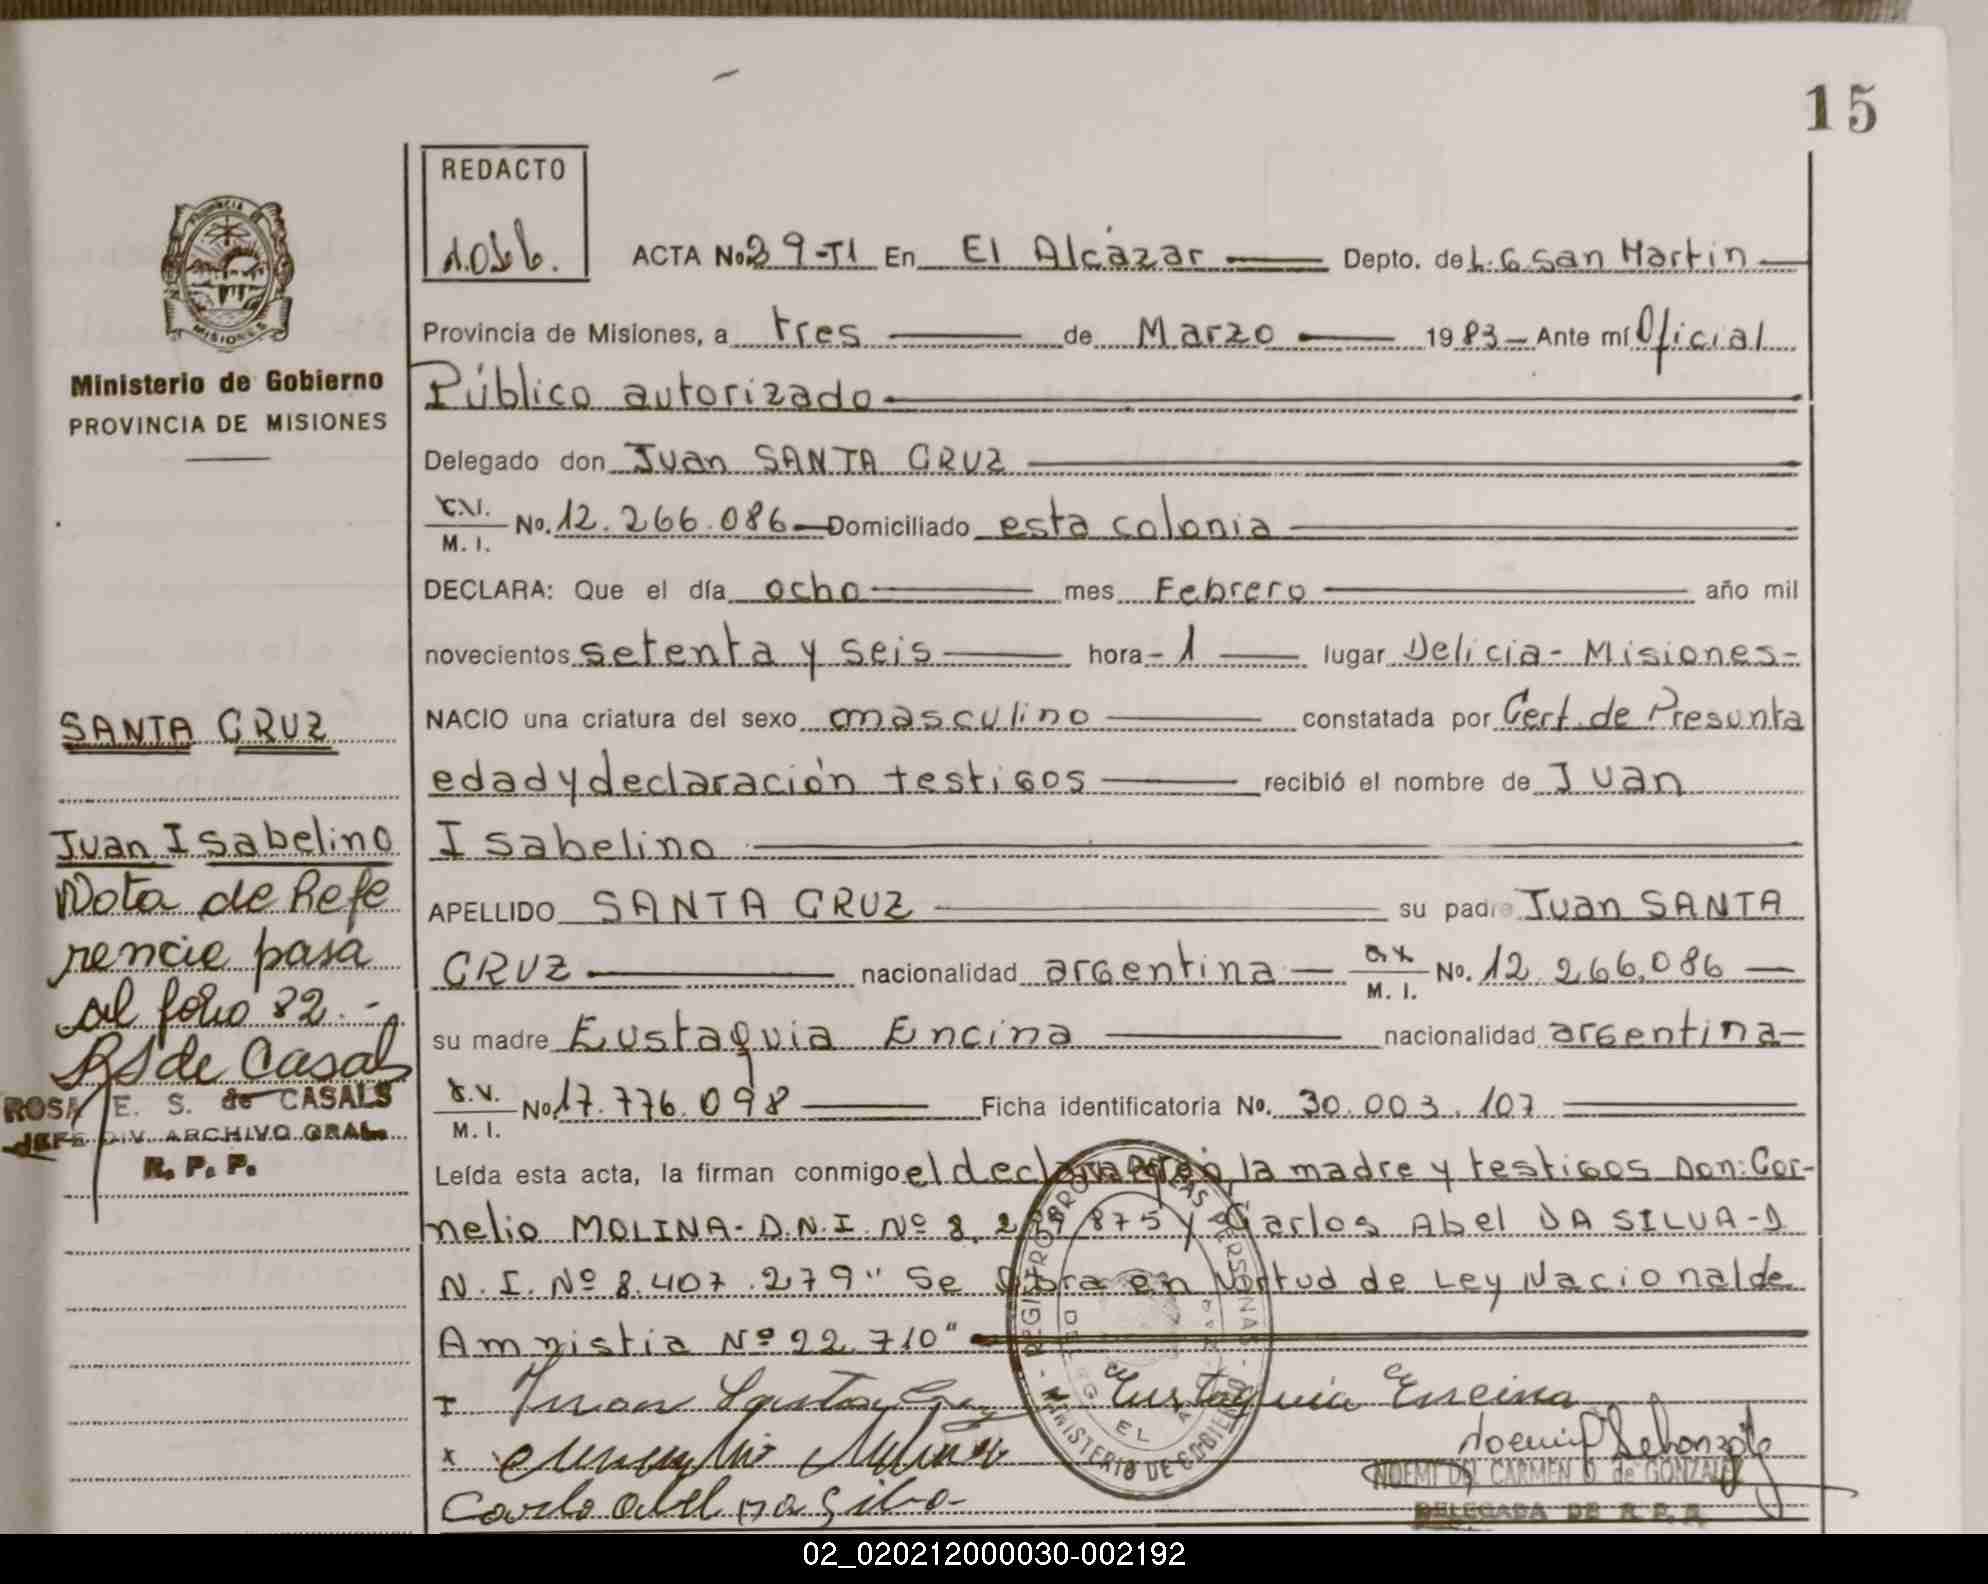 15
REDACTO
PROVINCIA DE
MISIONES
Ministerio de Gobierno
PROVINCIA DE MISIONES
ACTA No. 29-T1 En El Alcázar Depto. de L. G. San Martin
Provincia de Misiones, a tres de Marzo 1983 Ante mí Oficial
Público autorizado
Delegado don Juan SANTA CRUZ
M. I. No. 12.266.086 Domiciliado esta colonia
DECLARA: Que el día ocho mes Febrero año mil
novecientos setenta y seis hora - 1 lugar Delicia - Misiones -
NACIO una criatura del sexo masculino constatada por Cert. de Presunta
edad y declaración testigos recibió el nombre de Juan
Isabelino
APELLIDO SANTA CRUZ su padre Juan SANTA
CRUZ nacionalidad argentina M. I. No. 12.266.086
su madre Eustaquia Encina nacionalidad argentina
M. I. No. 17.776.098 Ficha identificatoria No. 30.003.107
Leída esta acta, la firman conmigo el declarante, la madre y testigos Don: Cor-
nelio MOLINA - D.N.I. Nº 8.2 875 y Carlos Abel DA SILVA - D.
N.I. Nº 8.407.279 " Se labra en virtud de Ley Nacional de
Amnistia Nº 22.710"
SANTA CRUZ
Juan Isabelino
Nota de Refe
rencie pasa
al folio 82.-
RS de Casals
ROSA E. S. de CASALS
JEFE DIV. ARCHIVO GRAL.
R. P. P.
Juan Santa Cruz
Eustaquia Encina
Carlo Abel Da Silva
NOEMI DEL CARMEN D. de GONZALEZ
DELEGADA DE R. P. P.
MINISTERIO DE GOBIERNO
02_020212000030-002192